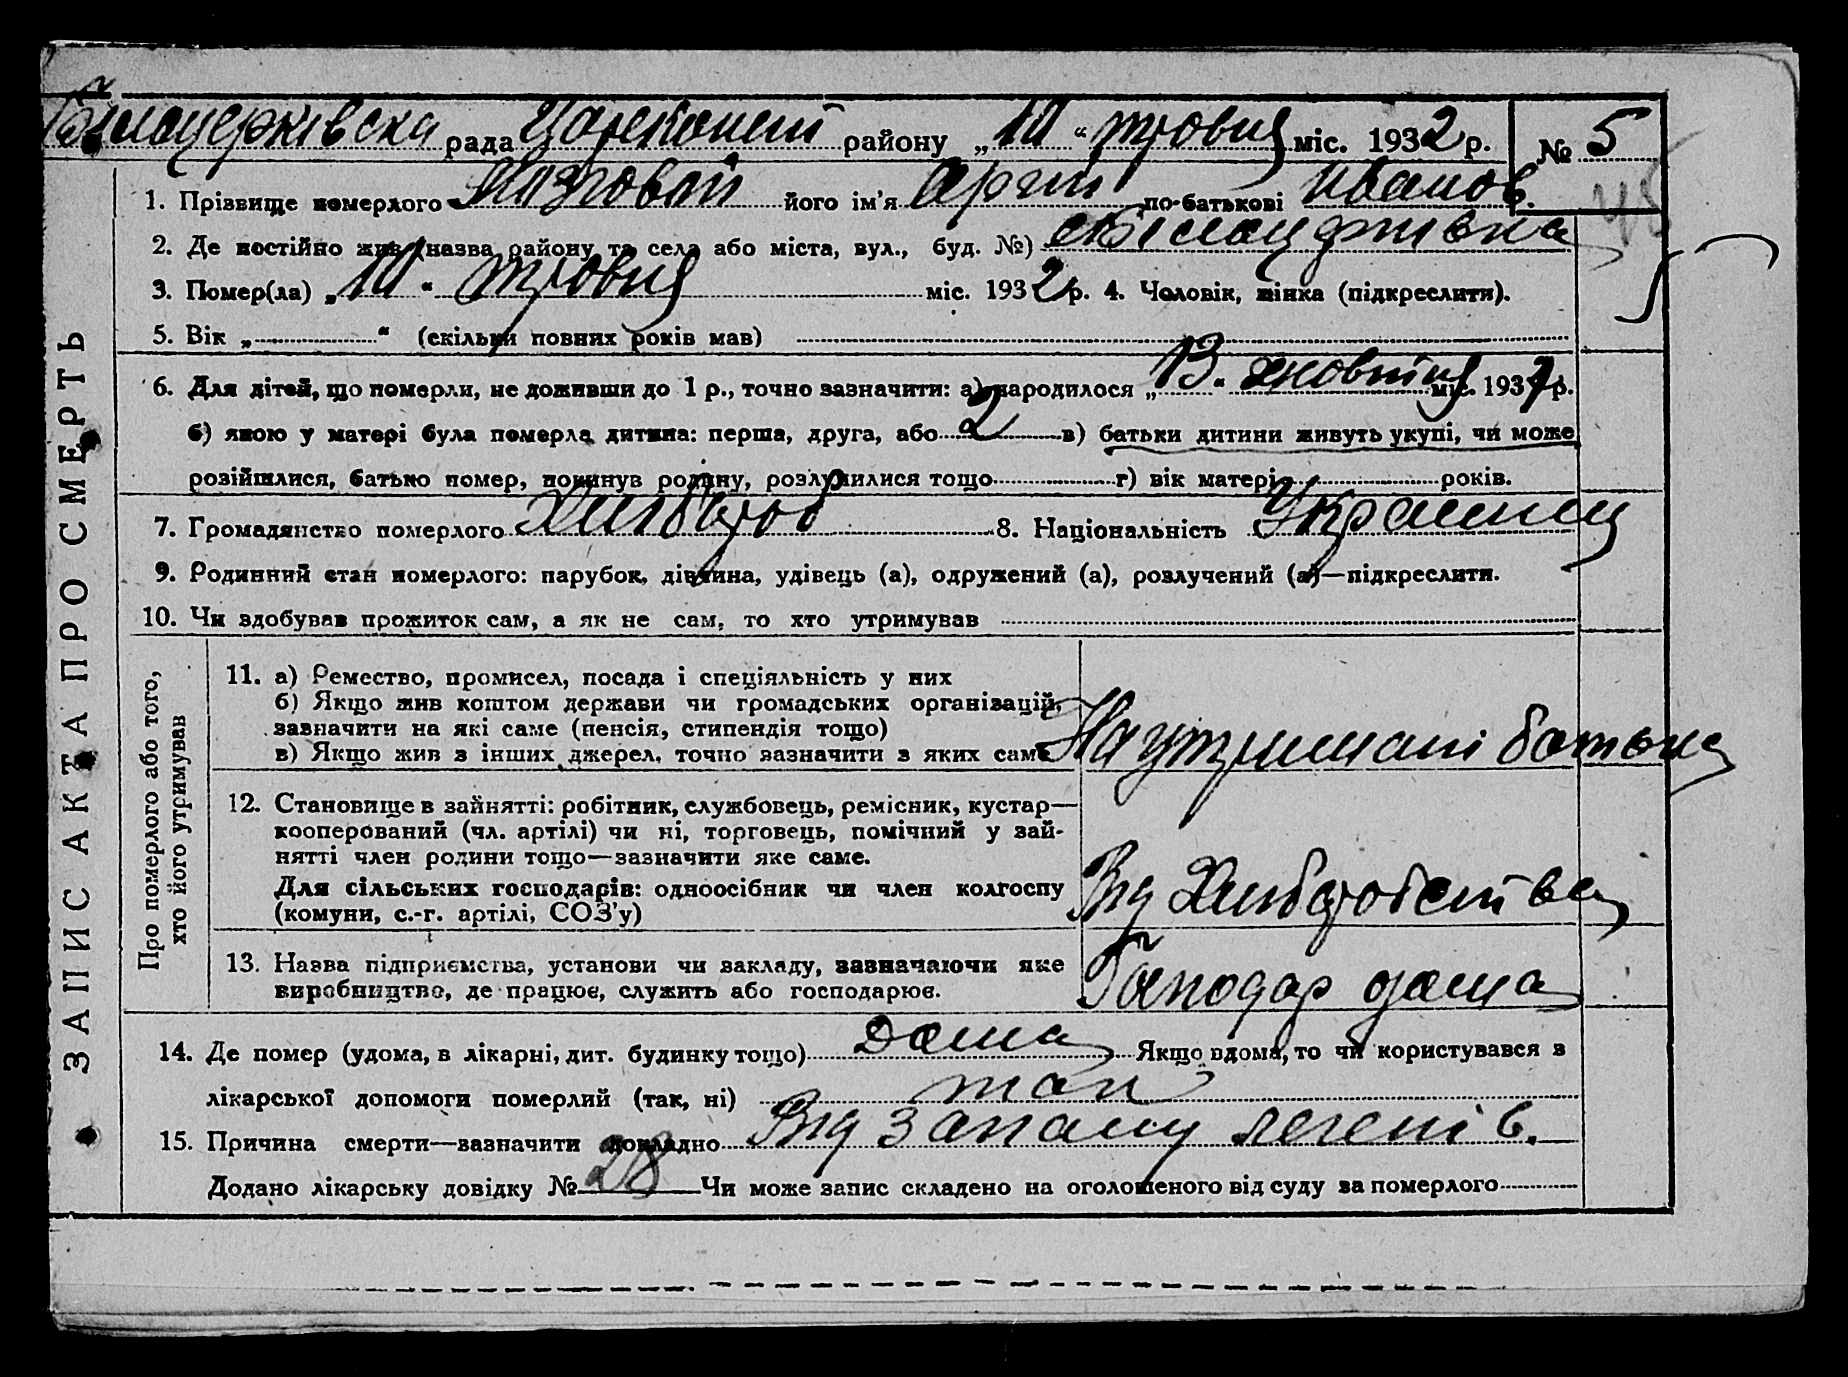 Білоцерківска рада району „10“ травня міс. 1932 р. № 5
1. Прізвище померлого його ім'я по-батькові Иванов.
2. Де постійно жив (назва району та села або міста, вул., буд. №)
3. Помер(ла) „10“ травня міс. 1932 р. 4. Чоловік, жінка (підкреслити).
5. Вік „ “ (скільки повних років мав)
6. Для дітей, що померли, не доживши до 1 р., точно зазначити: а) народилося „13“ жовтня міс. 193 р.
б) якою у матері була померла дитина: перша, друга, або 2 в) батьки дитини живуть укупі, чи може
розійшлися, батько помер, покинув родину, розлучилися тощо г) вік матері років.
7. Громадянство померлого Хлібороб 8. Національність Украинец
9. Родинний стан померлого: парубок, дівчина, удівець (а), одружений (а), розлучений (а)—підкреслити.
10. Чи здобував прожиток сам, а як не сам, то хто утримував
ЗАПИС АКТА ПРО СМЕРТЬ
Про померлого або того, хто його утримував
11. а) Ремество, промисел, посада і спеціяльність у них
б) Якщо жив коштом держави чи громадських організацій,
зазначити на які саме (пенсія, стипендія тощо)
в) Якщо жив з інших джерел, точно зазначити з яких саме
На утримані батька
12. Становище в зайнятті: робітник, службовець, ремісник, кустар—
кооперований (чл. артілі) чи ні, торговець, помічний у зай-
нятті член родини тощо—зазначити яке саме.
Для сільських господарів: одноосібник чи член колгоспу
(комуни, с.-г. артілі, СОЗ'у)
Від Хліборобства
13. Назва підприємства, установи чи закладу, зазначаючи яке
виробництво, де працює, служить або господарює.
Господар дома
14. Де помер (удома, в лікарні, дит. будинку тощо) Дома Якщо вдома, то чи користувався з
лікарської допомоги померлий (так, ні) так
15. Причина смерти—зазначити докладно Від запалу легенів.
Додано лікарську довідку № 28 Чи може запис складено на оголошеного від суду за померлого